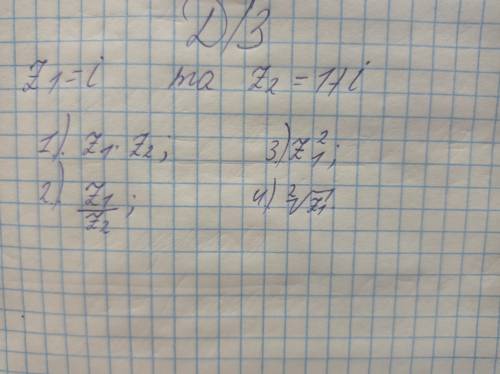 Д/З
Z1 = i та Z2 = 1+i
1). Z1 · Z2;
2). Z1/Z2;
3) Z1²;
4) ²√Z1